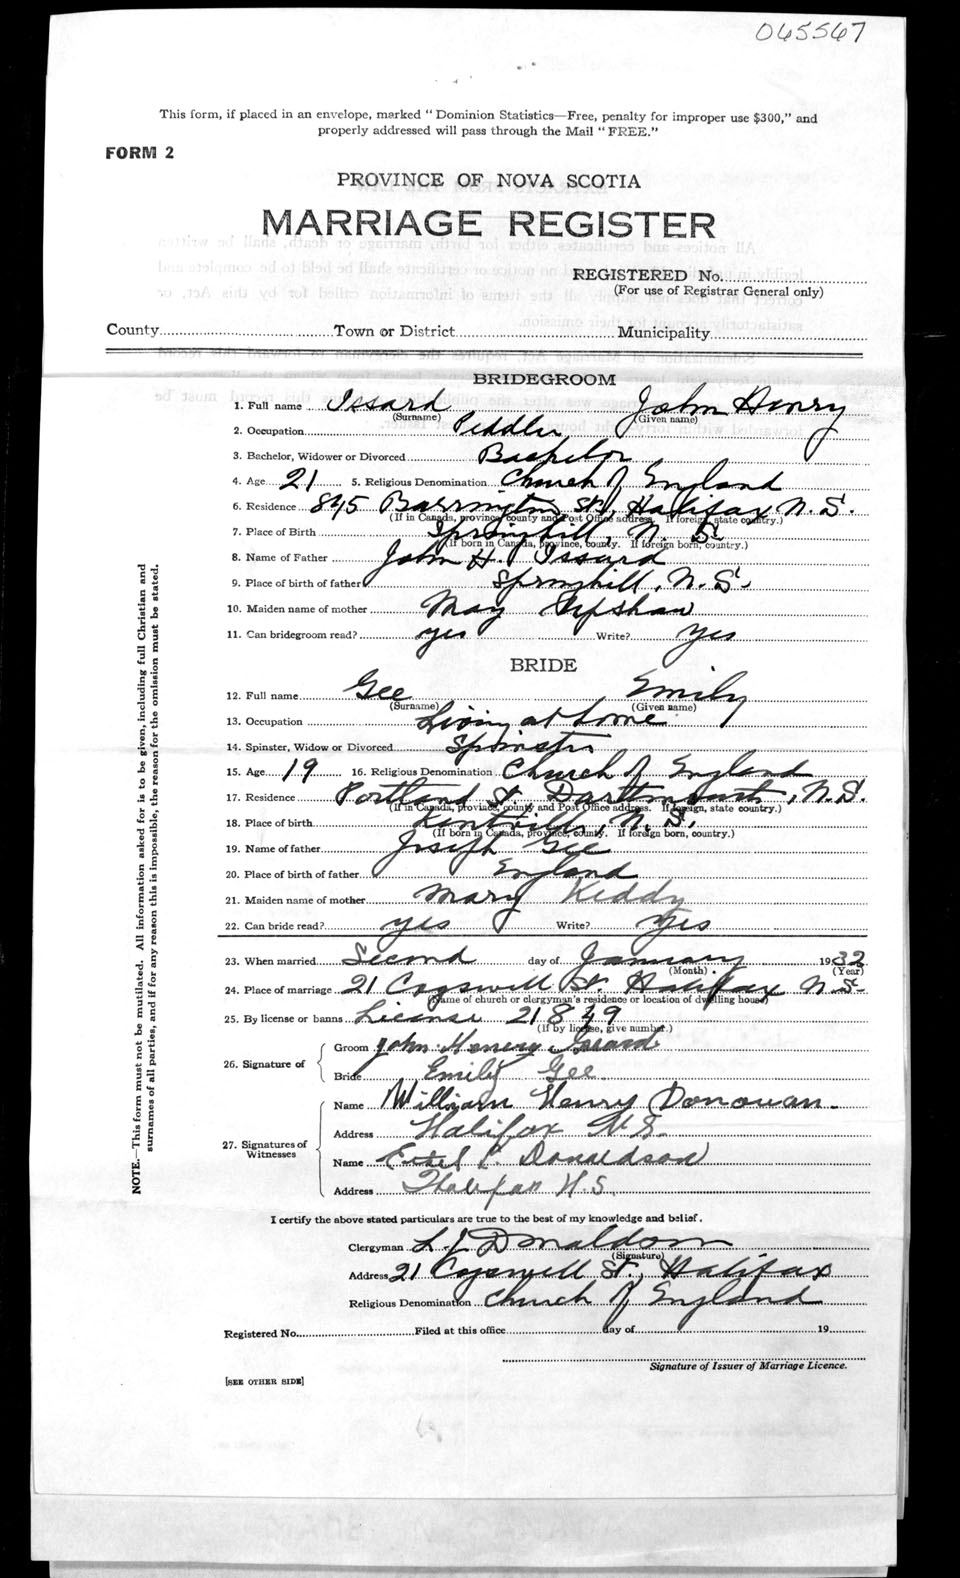 065567
This form, if placed in an envelope, marked "Dominion Statistics—Free, penalty for improper use $300," and
properly addressed will pass through the Mail "FREE."
FORM 2
PROVINCE OF NOVA SCOTIA
MARRIAGE REGISTER
REGISTERED No.
(For use of Registrar General only)
County Town or District Municipality
BRIDEGROOM
1. Full name Issard John Henry
(Surname) (Given name)
2. Occupation Peddler
3. Bachelor, Widower or Divorced Bachelor
4. Age 21 5. Religious Denomination Church of England
6. Residence 845 Barrington St, Halifax N.S.
(If in Canada, province, county and Post Office address. If foreign, state country.)
7. Place of Birth Springhill, N.S.
(If born in Canada, province, county. If foreign born, country.)
8. Name of Father John H. Issard
9. Place of birth of father Springhill, N.S.
10. Maiden name of mother May
11. Can bridegroom read? yes Write? yes
BRIDE
12. Full name Gee Emily
(Surname) (Given name)
13. Occupation Living at home
14. Spinster, Widow or Divorced Spinster
15. Age 19 16. Religious Denomination Church of England
17. Residence Portland St. Dartmouth, N.S.
(If in Canada, province, county and Post Office address. If foreign, state country.)
18. Place of birth Kentville N.S.
(If born in Canada, province, county. If foreign born, country.)
19. Name of father Joseph Gee
20. Place of birth of father England
21. Maiden name of mother Mary Keddy
22. Can bride read? yes Write? Yes
23. When married Second day of January 1932
(Month) (Year)
24. Place of marriage 21 Cogswell St. Halifax N.S.
(Name of church or clergyman's residence or location of dwelling house)
25. By license or banns License 21849
(If by license, give number.)
26. Signature of
Groom John Henery Issard
Bride Emily Gee
27. Signatures of Witnesses
Name William Henry Donovan.
Address Halifax N.S.
Name Ethel Donaldson
Address Halifax N.S.
I certify the above stated particulars are true to the best of my knowledge and belief.
Clergyman L J Donaldson
(Signature)
Address 21 Cogswell St., Halifax
Religious Denomination Church of England
Registered No. Filed at this office day of 19
Signature of Issuer of Marriage Licence.
[SEE OTHER SIDE]
NOTE.—This form must not be mutilated. All information asked for is to be given, including full Christian and
surnames of all parties, and if for any reason this is impossible, the reason for the omission must be stated.